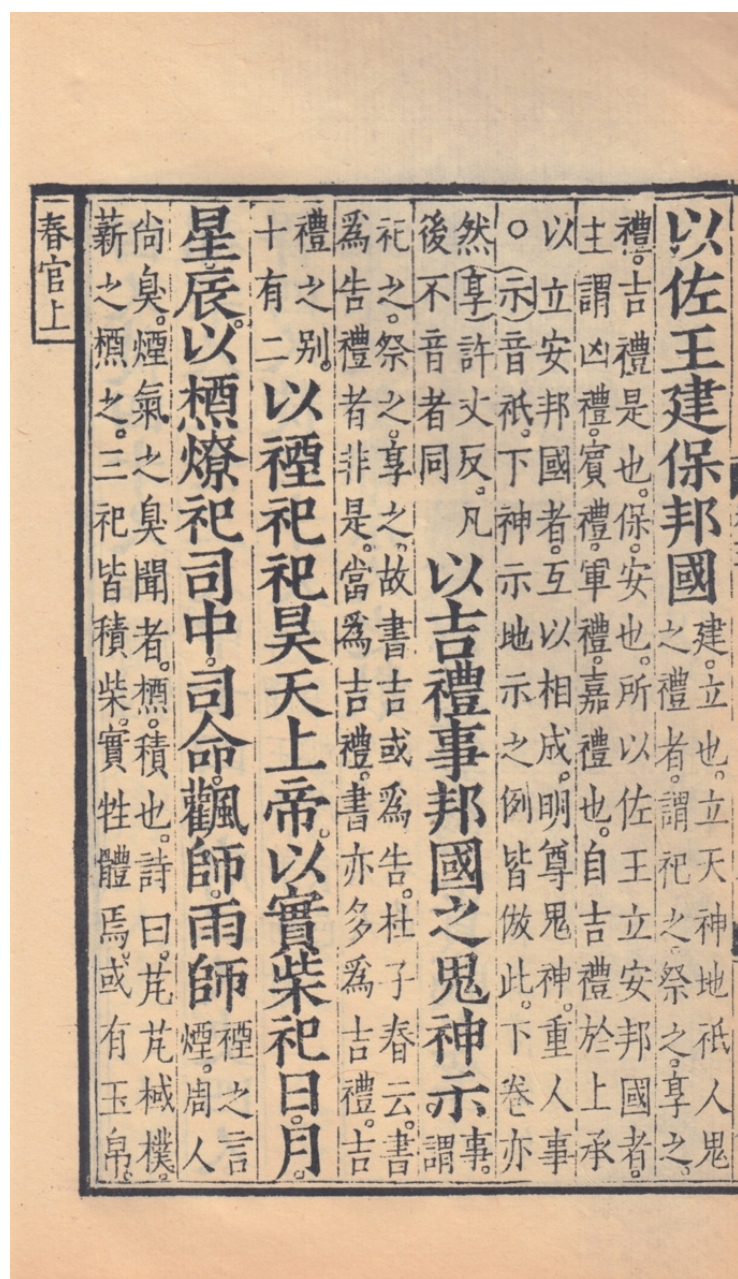 以佐王建保邦國
建。立也。立天神地祇人鬼
之禮者。謂祀之。祭之。享之。
禮。吉禮是也。保。安也。所以佐王立安邦國者。
主謂凶禮。賓禮。軍禮。嘉禮也。自吉禮於上承
以立安邦國者。互以相成。明尊鬼神。重人事
○(示)音祇。下神示地示之例皆倣此。下卷亦
然(享)許丈反。凡
後不音者同
以吉禮事邦國之鬼神示。
事。
謂
祀之。祭之。享之。故書吉或爲告。杜子春云。書
爲告禮者非是。當爲吉禮。書亦多爲吉禮。吉
禮之別。
十有二
以禋祀祀昊天上帝。以實柴祀日。月。
星。辰。以槱燎祀司中。司命。飌師。雨師
禋之言
煙。周人
尙臭。煙氣之臭聞者。槱。積也。詩曰。芃芃棫樸。
薪之槱之。三祀皆積柴。實牲體焉。或有玉帛。
春官上